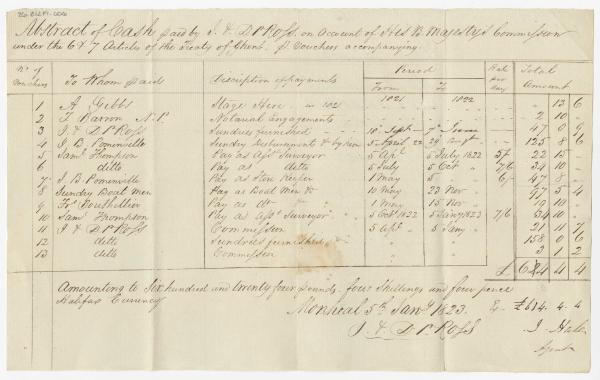 Abstract of Cash paid by J. & D. P. Ross, on Account of His B. Majesty's Commission
under the 6 & 7 Articles of the Treaty of Ghent. P. Vouchers accompanying.
No. of Vouchers To Whom paid Description of payments Period From To Rate per day Total Amount
1821 1822
1 A. Gibbs Stage Hire in 1821 " 13 6
2 T. Barron N.P. Notarial Engagements " 2 10 "
3 J. & D. P. Ross Sundries furnished 10 Sept 7 June 47 0 9
4 J. B. Pomenville Sundry 5 April 22 29 Augt 125 8 6
5 Saml Thompson Pay as Asst Surveyor 5 Apl 5 July 1822 5/ 22 15 "
6 ditto Pay as ditto 5 July 5 Oct 7/6 34 10 "
7 J. B. Pomenville Pay as 1 May 5 6/ 47 8 "
8 Sundry Boat Men Pay as Boat Men &c 10 May 23 Nov 97 5 4
9 Fr. Pay as do 1 May 15 Nov 19 10 "
10 Saml Thompson Pay as Asst Surveyor 5 Oct 1822 5 Jany 1823 7/6 34 10 "
11 J. & D. P. Ross Commission 5 Apl 5 Jany 21 11 7
12 ditto Sundries furnished " " 158 0 6
13 ditto Commission " " 3 1 2
£ 624 4 4
Amounting to Six hundred and twenty four pounds, four Shillings and four pence
Halifax Currency
Montreal 5th Jany 1823. £624. 4. 4
J. & D. P. Ross J. Hale
Agent